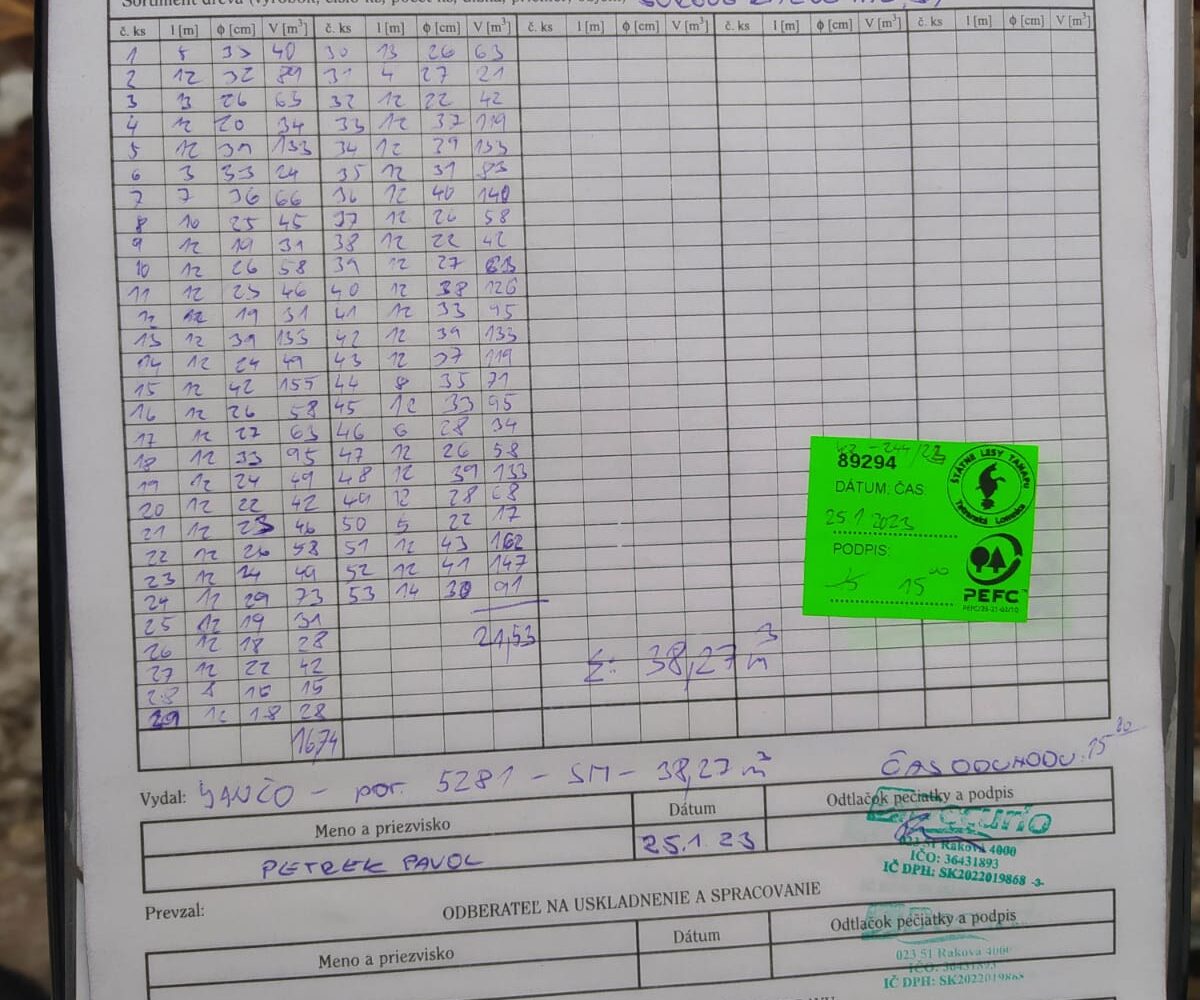 č. ks l [m] ϕ [cm] V [m³] č. ks l [m] ϕ [cm] V [m³] č. ks l [m] ϕ [cm] V [m³] č. ks l [m] ϕ [cm] V [m³] č. ks l [m] ϕ [cm] V [m³]
1 8 33 40 30 13 26 63
2 12 32 89 31 4 27 21
3 13 26 63 32 12 22 42
4 12 20 34 33 12 37 119
5 12 39 133 34 12 39 133
6 3 33 24 35 12 31 83
7 7 36 66 36 12 40 140
8 10 25 45 37 12 26 58
9 12 19 31 38 12 22 42
10 12 26 58 39 12 27 63
11 12 23 46 40 12 38 126
12 12 19 31 41 12 33 95
13 12 39 133 42 12 39 133
14 12 24 49 43 12 37 119
15 12 42 155 44 8 35 71
16 12 26 58 45 12 33 95
17 12 27 63 46 6 28 34
18 12 33 95 47 12 26 58
19 12 24 49 48 12 39 133
20 12 22 42 49 12 28 68
21 12 23 46 50 5 22 17
22 12 26 58 51 12 43 162
23 12 24 49 52 12 41 147
24 12 29 73 53 14 30 91
25 12 19 31
26 12 18 28 21,53
27 12 22 42 Σ: 38,27 m³
28 8 16 15
29 12 18 28
1674
89294
DÁTUM, ČAS:
25.1.2023
PODPIS:
15⁰⁰
ŠTÁTNE LESY TANAPU
Tatranská Lomnica
PEFC
Vydal: JANČO - por. 5281 - SM - 38,27 m³ ČAS ODCHODU: 15
Meno a priezvisko Dátum Odtlačok pečiatky a podpis
PETREK PAVOL 25.1.23
023 51 Raková 4000
IČO: 36431893
IČ DPH: SK2022019868 -3-
Prevzal: ODBERATEĽ NA USKLADNENIE A SPRACOVANIE
Meno a priezvisko Dátum Odtlačok pečiatky a podpis
023 51 Raková 4000
IČO: 36431893
IČ DPH: SK2022019868